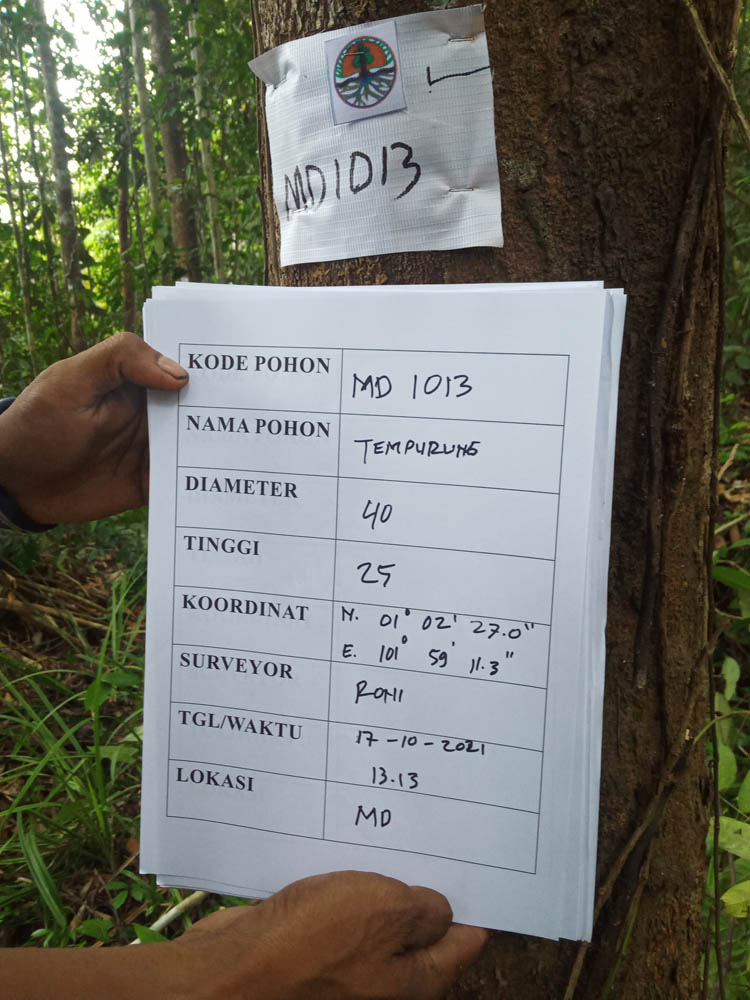 MD1013
KODE POHON MD 1013
NAMA POHON TEMPURUNG
DIAMETER 40
TINGGI 25
KOORDINAT N. 01° 02' 27.0"
E. 101° 59' 11.3"
SURVEYOR RONI
TGL/WAKTU 17-10-2021
13.13
LOKASI MD